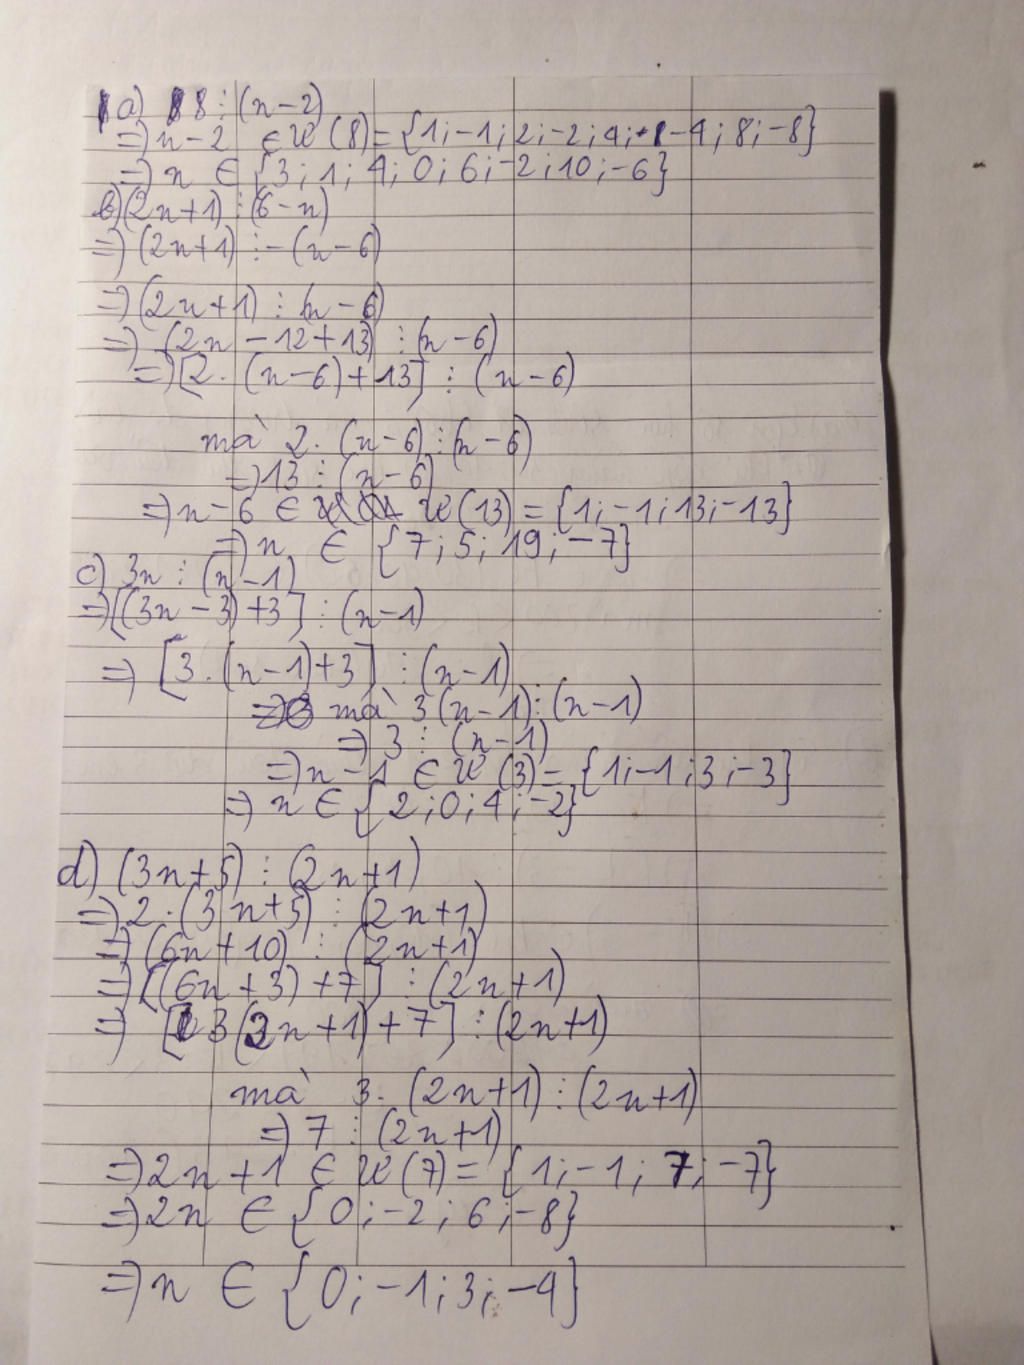 1a) 8 ⋮ (n-2)
=> n-2 ∈ Ư(8) = {1;-1;2;-2;4;-4;8;-8}
=> n ∈ {3;1;4;0;6;-2;10;-6}
b) (2n+1) ⋮ (6-n)
=> (2n+1) ⋮ -(n-6)
=> (2n+1) ⋮ (n-6)
=> (2n-12+13) ⋮ (n-6)
=> [2.(n-6)+13] ⋮ (n-6)
mà 2.(n-6) ⋮ (n-6)
=> 13 ⋮ (n-6)
=> n-6 ∈ Ư(13) = {1;-1;13;-13}
=> n ∈ {7;5;19;-7}
c) 3n ⋮ (n-1)
=> [(3n-3)+3] ⋮ (n-1)
=> [3.(n-1)+3] ⋮ (n-1)
mà 3(n-1) ⋮ (n-1)
=> 3 ⋮ (n-1)
=> n-1 ∈ Ư(3) = {1;-1;3;-3}
=> n ∈ {2;0;4;-2}
d) (3n+5) ⋮ (2n+1)
=> 2.(3n+5) ⋮ (2n+1)
=> (6n+10) ⋮ (2n+1)
=> [(6n+3)+7] ⋮ (2n+1)
=> [3(2n+1)+7] ⋮ (2n+1)
mà 3.(2n+1) ⋮ (2n+1)
=> 7 ⋮ (2n+1)
=> 2n+1 ∈ Ư(7) = {1;-1;7;-7}
=> 2n ∈ {0;-2;6;-8}
=> n ∈ {0;-1;3;-4}